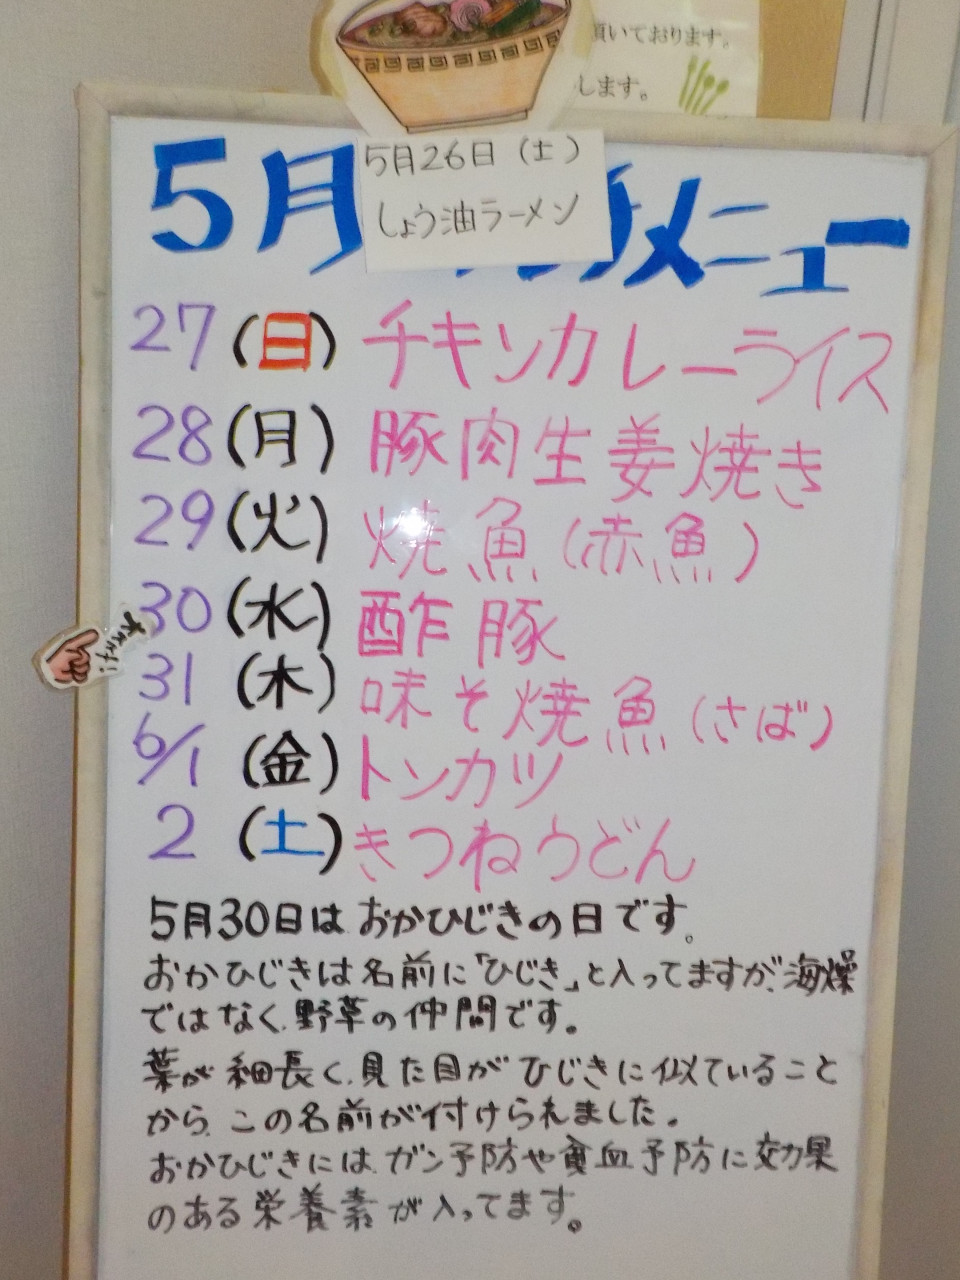 頂いております。
します。
5月26日（土）
しょう油ラーメン
5月 メニュー
27(日) チキンカレーライス
28(月) 豚肉生姜焼き
29(火) 焼魚(赤魚)
30(水) 酢豚
31(木) 味そ焼魚(さば)
6/1(金) トンカツ
2(土) きつねうどん
5月30日は おかひじきの日です。
おかひじきは名前に「ひじき」と入ってますが、海燥
ではなく、野草の仲間です。
葉が細長く、見た目がひじきに似ていること
から、この名前が付けられました。
おかひじきには、ガン予防や貧血予防に効果
のある栄養素が入ってます。